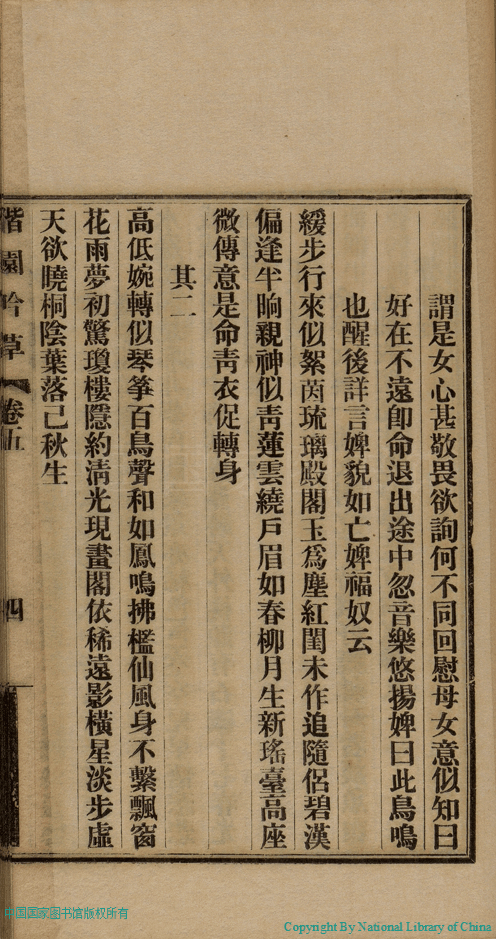 謂是女心甚敬畏欲詢何不同回慰母女意似知曰
好在不遠卽命退出途中忽音樂悠揚婢曰此鳥鳴
也醒後詳言婢貌如亡婢福奴云
緩步行來似絮茵琉璃殿閣玉爲塵紅閨未作追隨侶碧漢
偏逢半晌親神似靑蓮雲繞戶眉如春柳月生新瑤臺高座
微傳意是命靑衣促轉身
其二
高低婉轉似琴箏百鳥聲和如鳳鳴拂檻仙風身不繫飄窗
花雨夢初驚瓊樓隱約淸光現畫閣依稀遠影橫星淡步虛
天欲曉桐陰葉落已秋生
偕園吟草 卷五 四
中国国家图书馆版权所有
Copyright By National Library of China